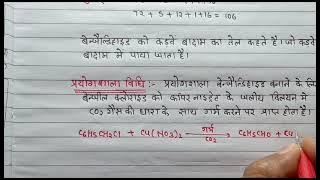 72 + 5 + 12 + 1 + 16 = 106
बेन्जैल्डिहाइड को कडवे बादाम का तेल कहते है। जो कडवे
बादाम में पाया जाता है।
प्रयोगशाला विधि :- प्रयोगशाला बेन्जैल्डिहाइड बनाने के लि
बेन्जील क्लोराइड को कॉपर नाइट्रेट के जलीय विलयन में
CO₂ गैस की धारा के साथ गर्म करने पर प्राप्त होता है।
C6H5CH2Cl + Cu(NO3)2 गर्म CO₂ → C6H5CHO + Cu